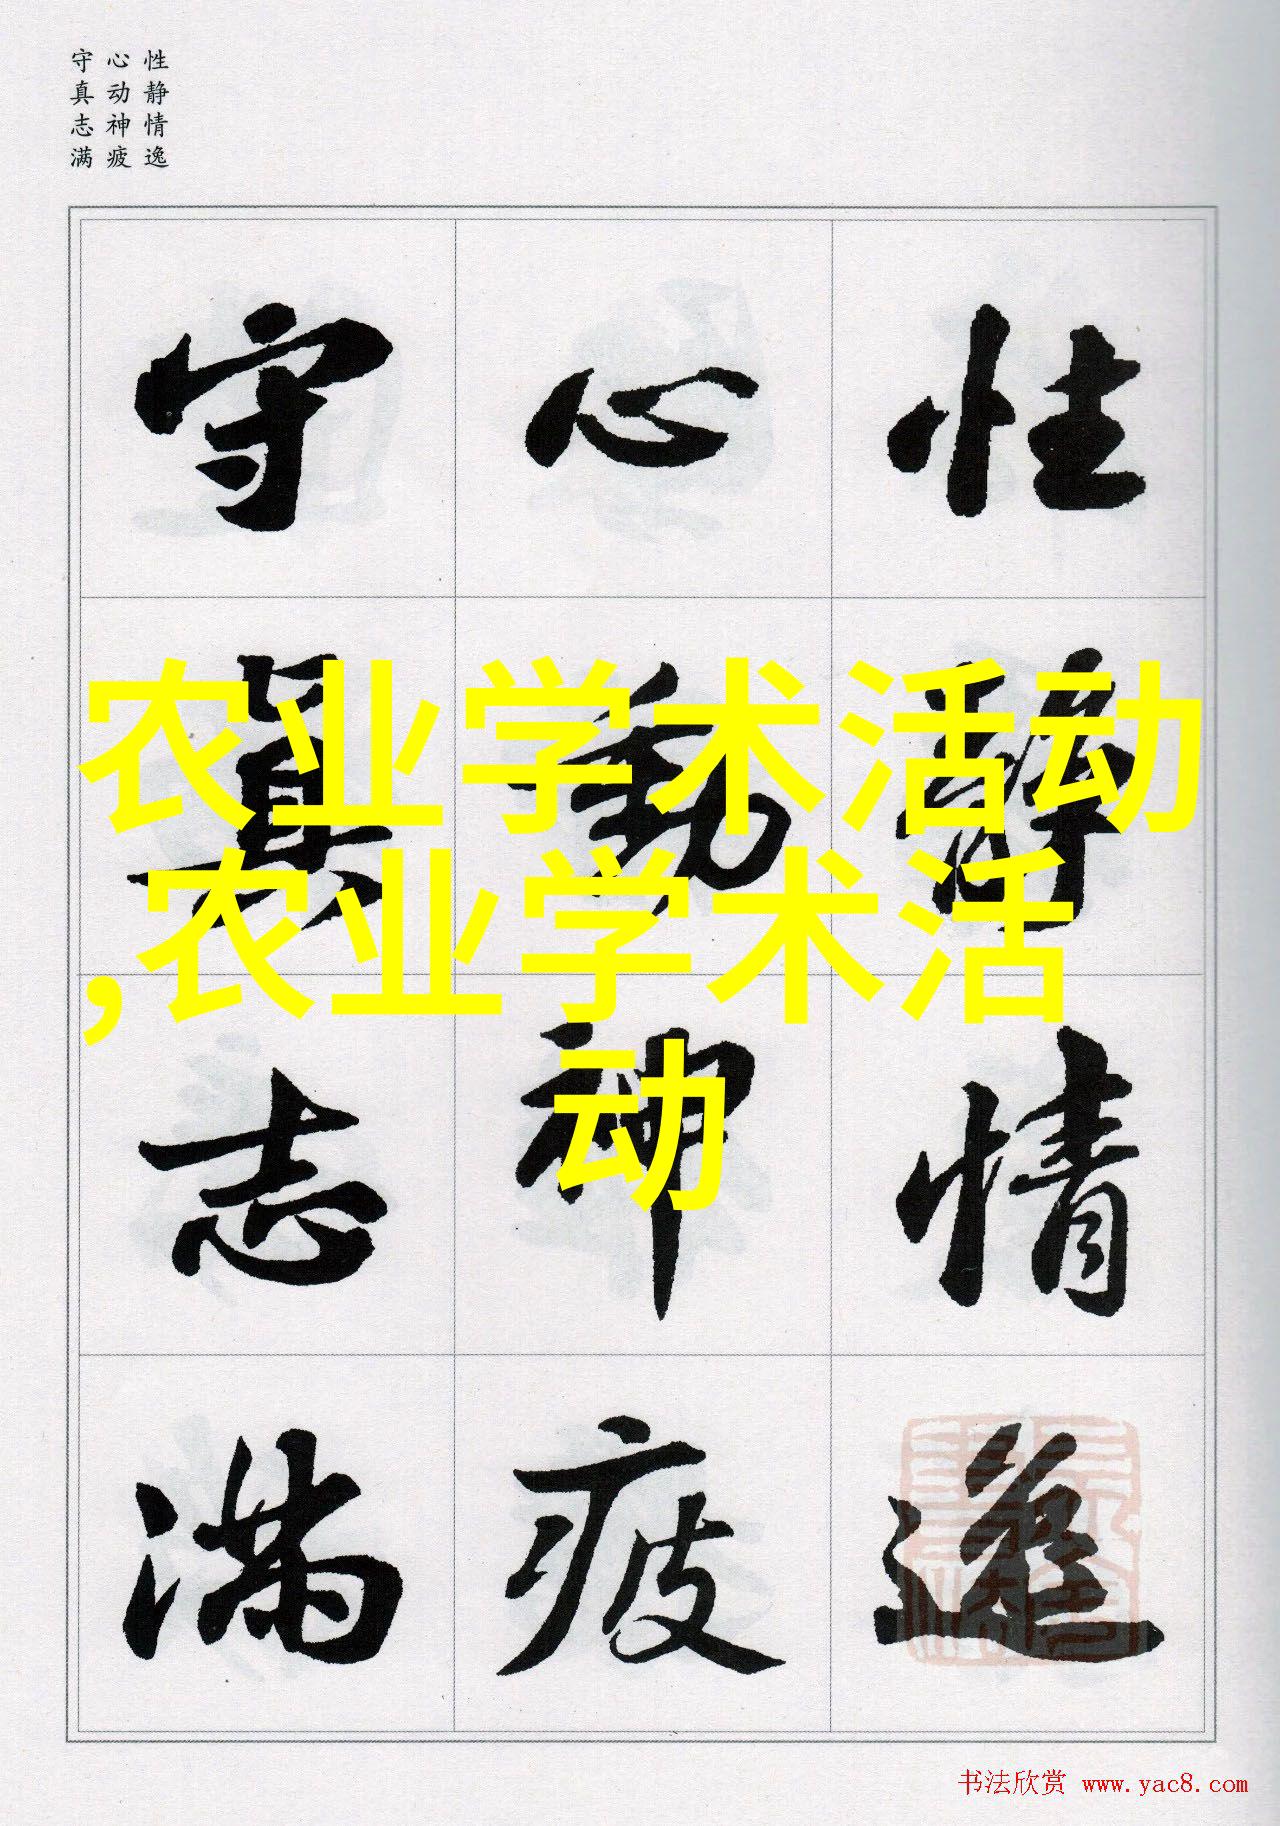 性静情逸
心动神疲
守真志满
性靜情逸
心動神疲
守真志滿
农业学术活动
,农业学术活
动
书法欣赏 www.yac8.com